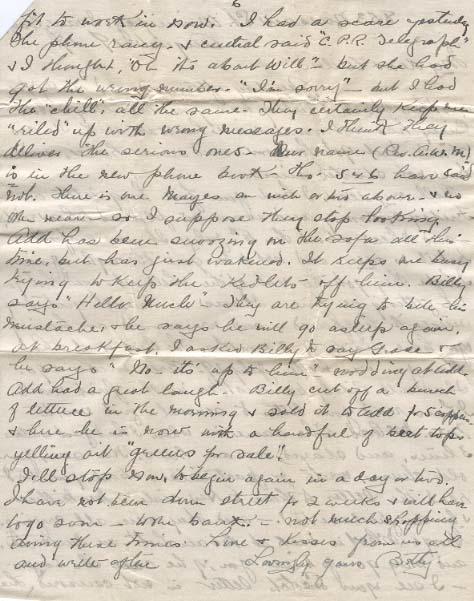 6
to work in now. I had a scare yesterday
the phone rang, & central said "C.P.R. Telegraph"
& I thought, "Oh it's about Will" - but she had
got the wrong number. "I'm sorry" - but I had
the "chill", all the same. They certainly keep me
"riled" up with wrong messages. I think they
deliver the serious ones. Our name (Rev. A.W.M.)
is in the new phone book - tho. 5 & 6 have said
not. There is one Mayes an inch or two above. & no
one near so I suppose they stop looking.
Add has been snoozing on the sofa all this
time, but has just wakened. It keeps me busy
trying to keep the kidlets off him. Billy
says "Hello Uncle". They are trying to bite his
mustache, & he says he will go asleep again.
At breakfast, I asked Billy to say Grace &
he says "No - it's up to him" nodding at Add.
Add had a great laugh. Billy cut off a bunch
of lettuce in the morning & sold it to Add for 5 coppers
& here he is now with a handful of beet tops
yelling out "greens for sale"!
I'll stop now, to begin again in a day or two.
I have not been down street for 2 weeks & will have
to go soon - to the bank. - not much shopping
during these times. Love & kisses from us all
and write often Lovingly yours Betty